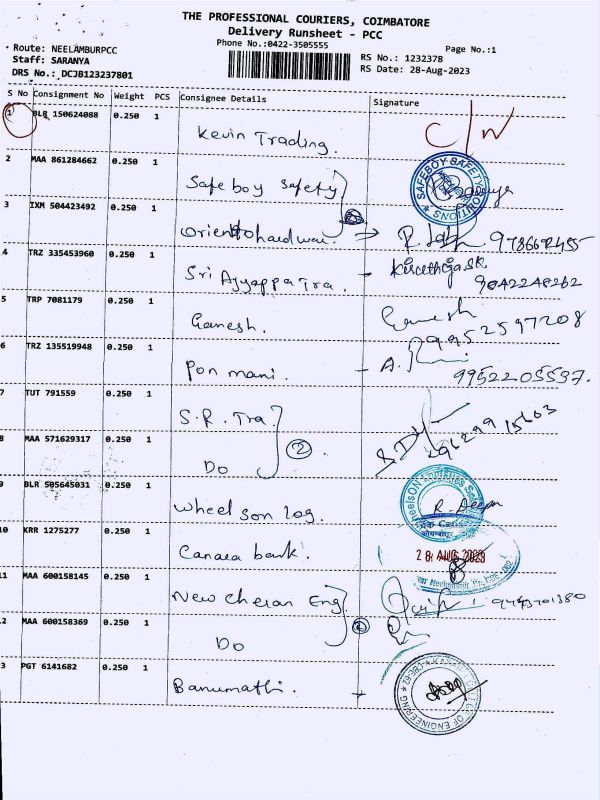 THE PROFESSIONAL COURIERS, COIMBATORE
Delivery Runsheet - PCC
Phone No.:0422-3505555
Page No.:1
Route: NEELAMBURPCC
Staff: SARANYA
DRS No.: DCJB123237801
RS No.: 1232378
RS Date: 28-Aug-2023
S No Consignment No Weight PCS Consignee Details Signature
1 BLR 150624088 0.250 1
Kevin Trading. C/W
2 MAA 861284662 0.250 1
Safeboy Safety
SAFEBOY SAFETY
3 IXM 504423492 0.250 1
4 TRZ 335453960 0.250 1
Sri Ayyappa Tra. 9042248262
5 TRP 7081179 0.250 1
Ganesh. Ganesh
9952597208
6 TRZ 135519948 0.250 1
Pon mani. A.
9952205537.
7 TUT 791559 0.250 1
S.R. Tra.
8 MAA 571629317 0.250 1
Do 2
9 BLR 505645031 0.250 1
Wheelson log. R. Deepa
10 KRR 1275277 0.250 1
Canara bank. 28 AUG 2023
11 MAA 600158145 0.250 1
New Cheran Eng.
12 MAA 600158369 0.250 1
Do
13 PGT 6141682 0.250 1
Banumathi.
OF ENGINEERING